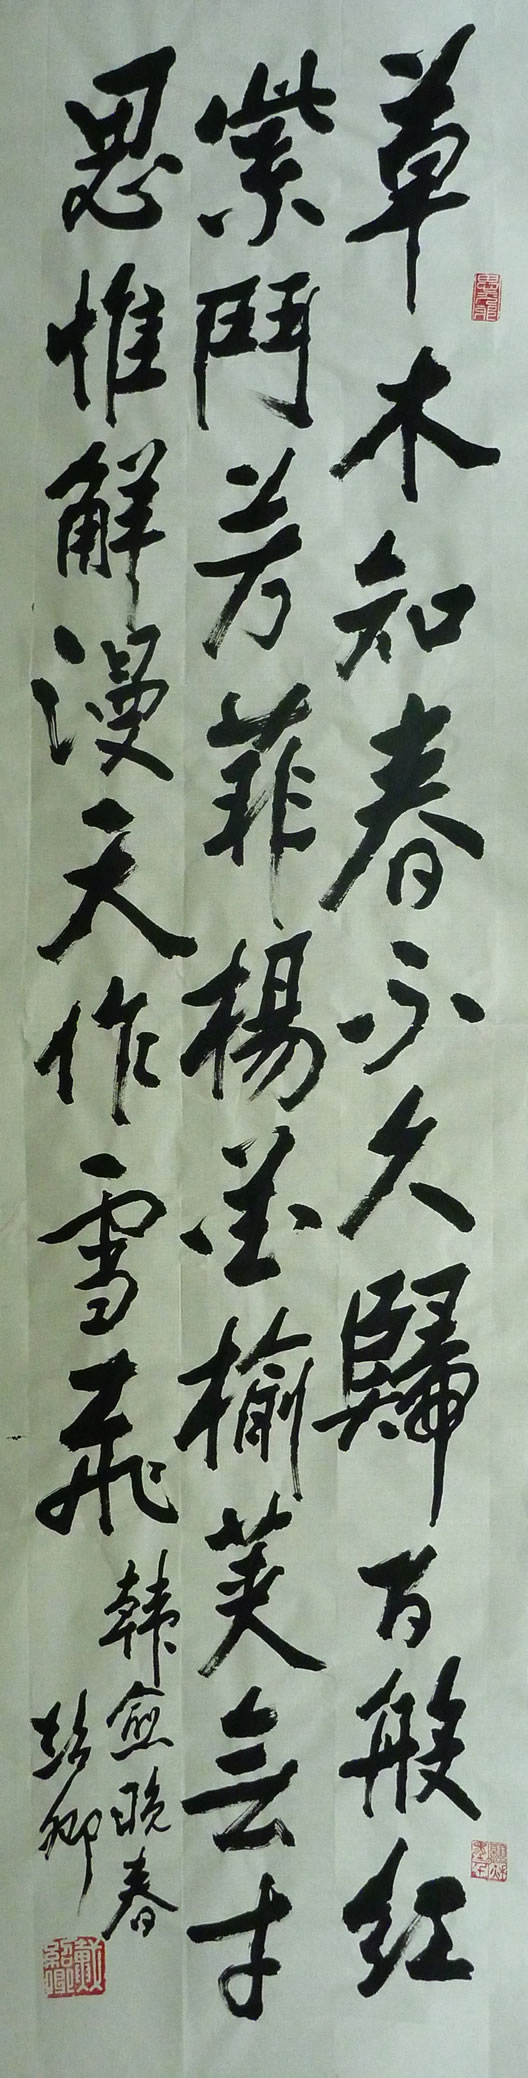 草木知春不久歸百般紅
紫鬥芳菲楊花榆莢無才
思惟解漫天作雪飛
韓愈晚春
紹卿
戴紹卿